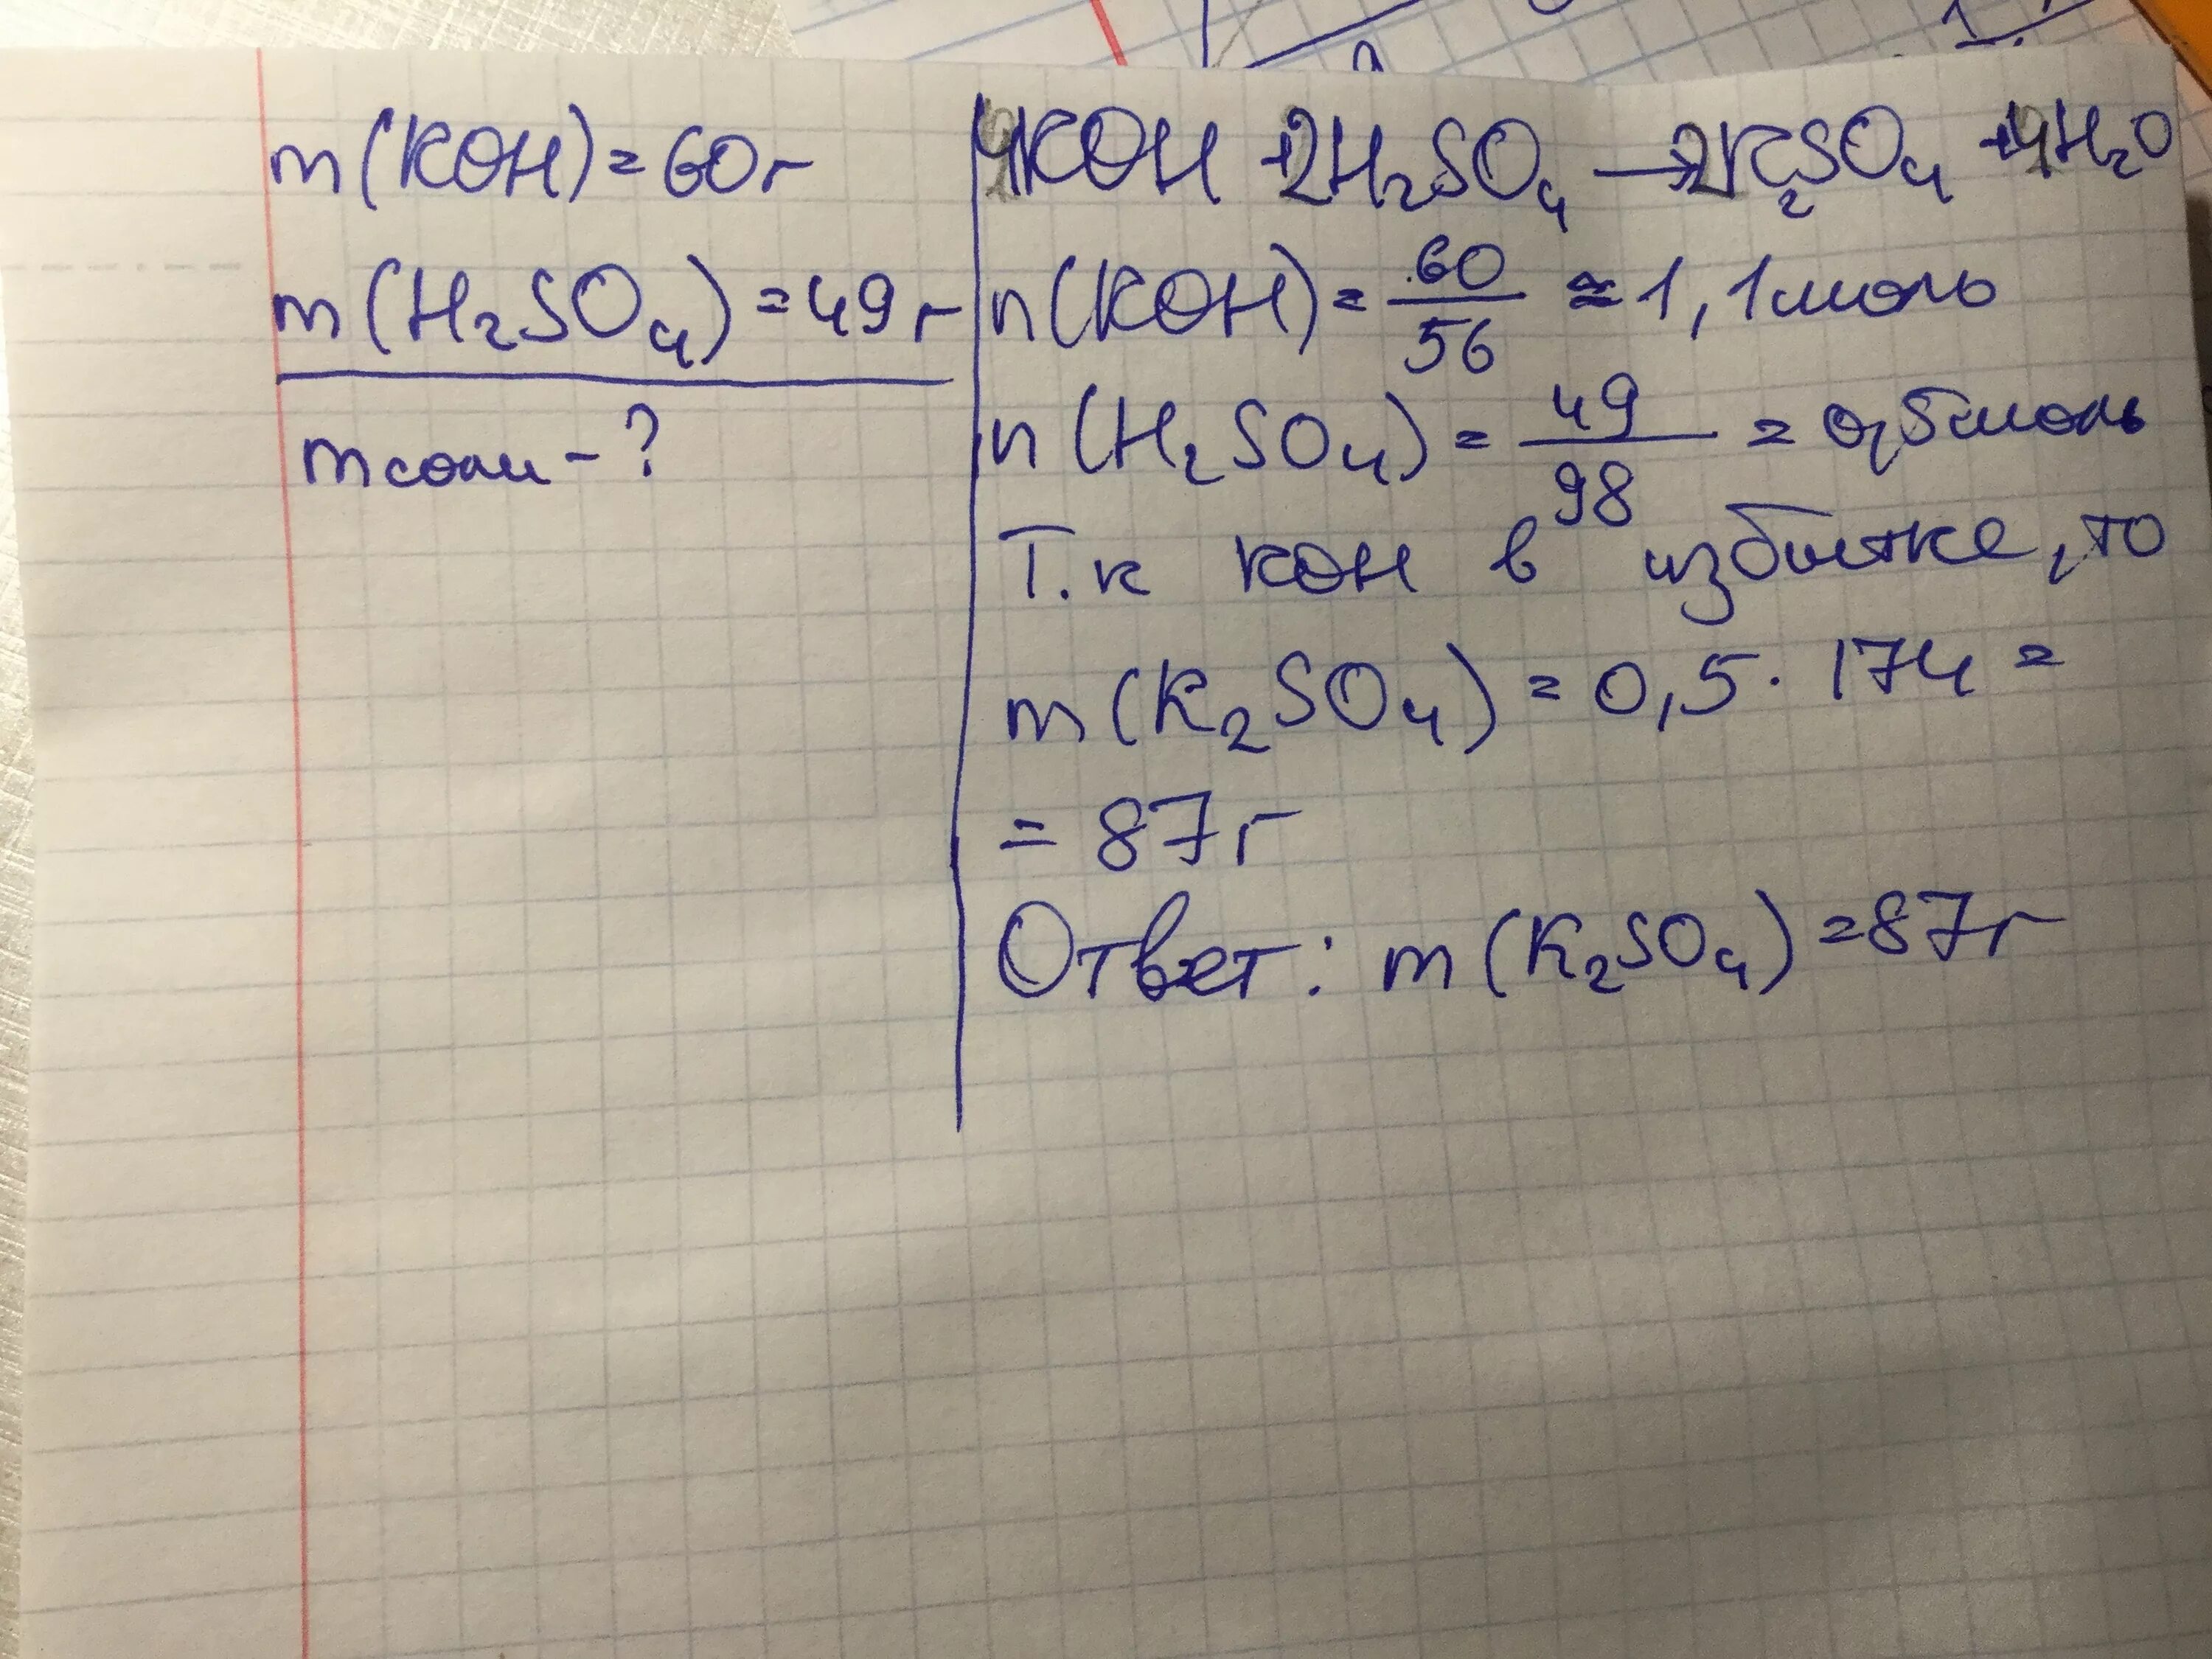 m(KOH)=60г
m(H₂SO₄)=49г
m соли-?
4KOH+2H₂SO₄→2K₂SO₄+4H₂O
n(KOH)=60/56≈1,1моль
n(H₂SO₄)=49/98=0,5моль
Т.к КОН в избытке, то
m(K₂SO₄)=0,5·174=
=87г
Ответ: m(K₂SO₄)=87г